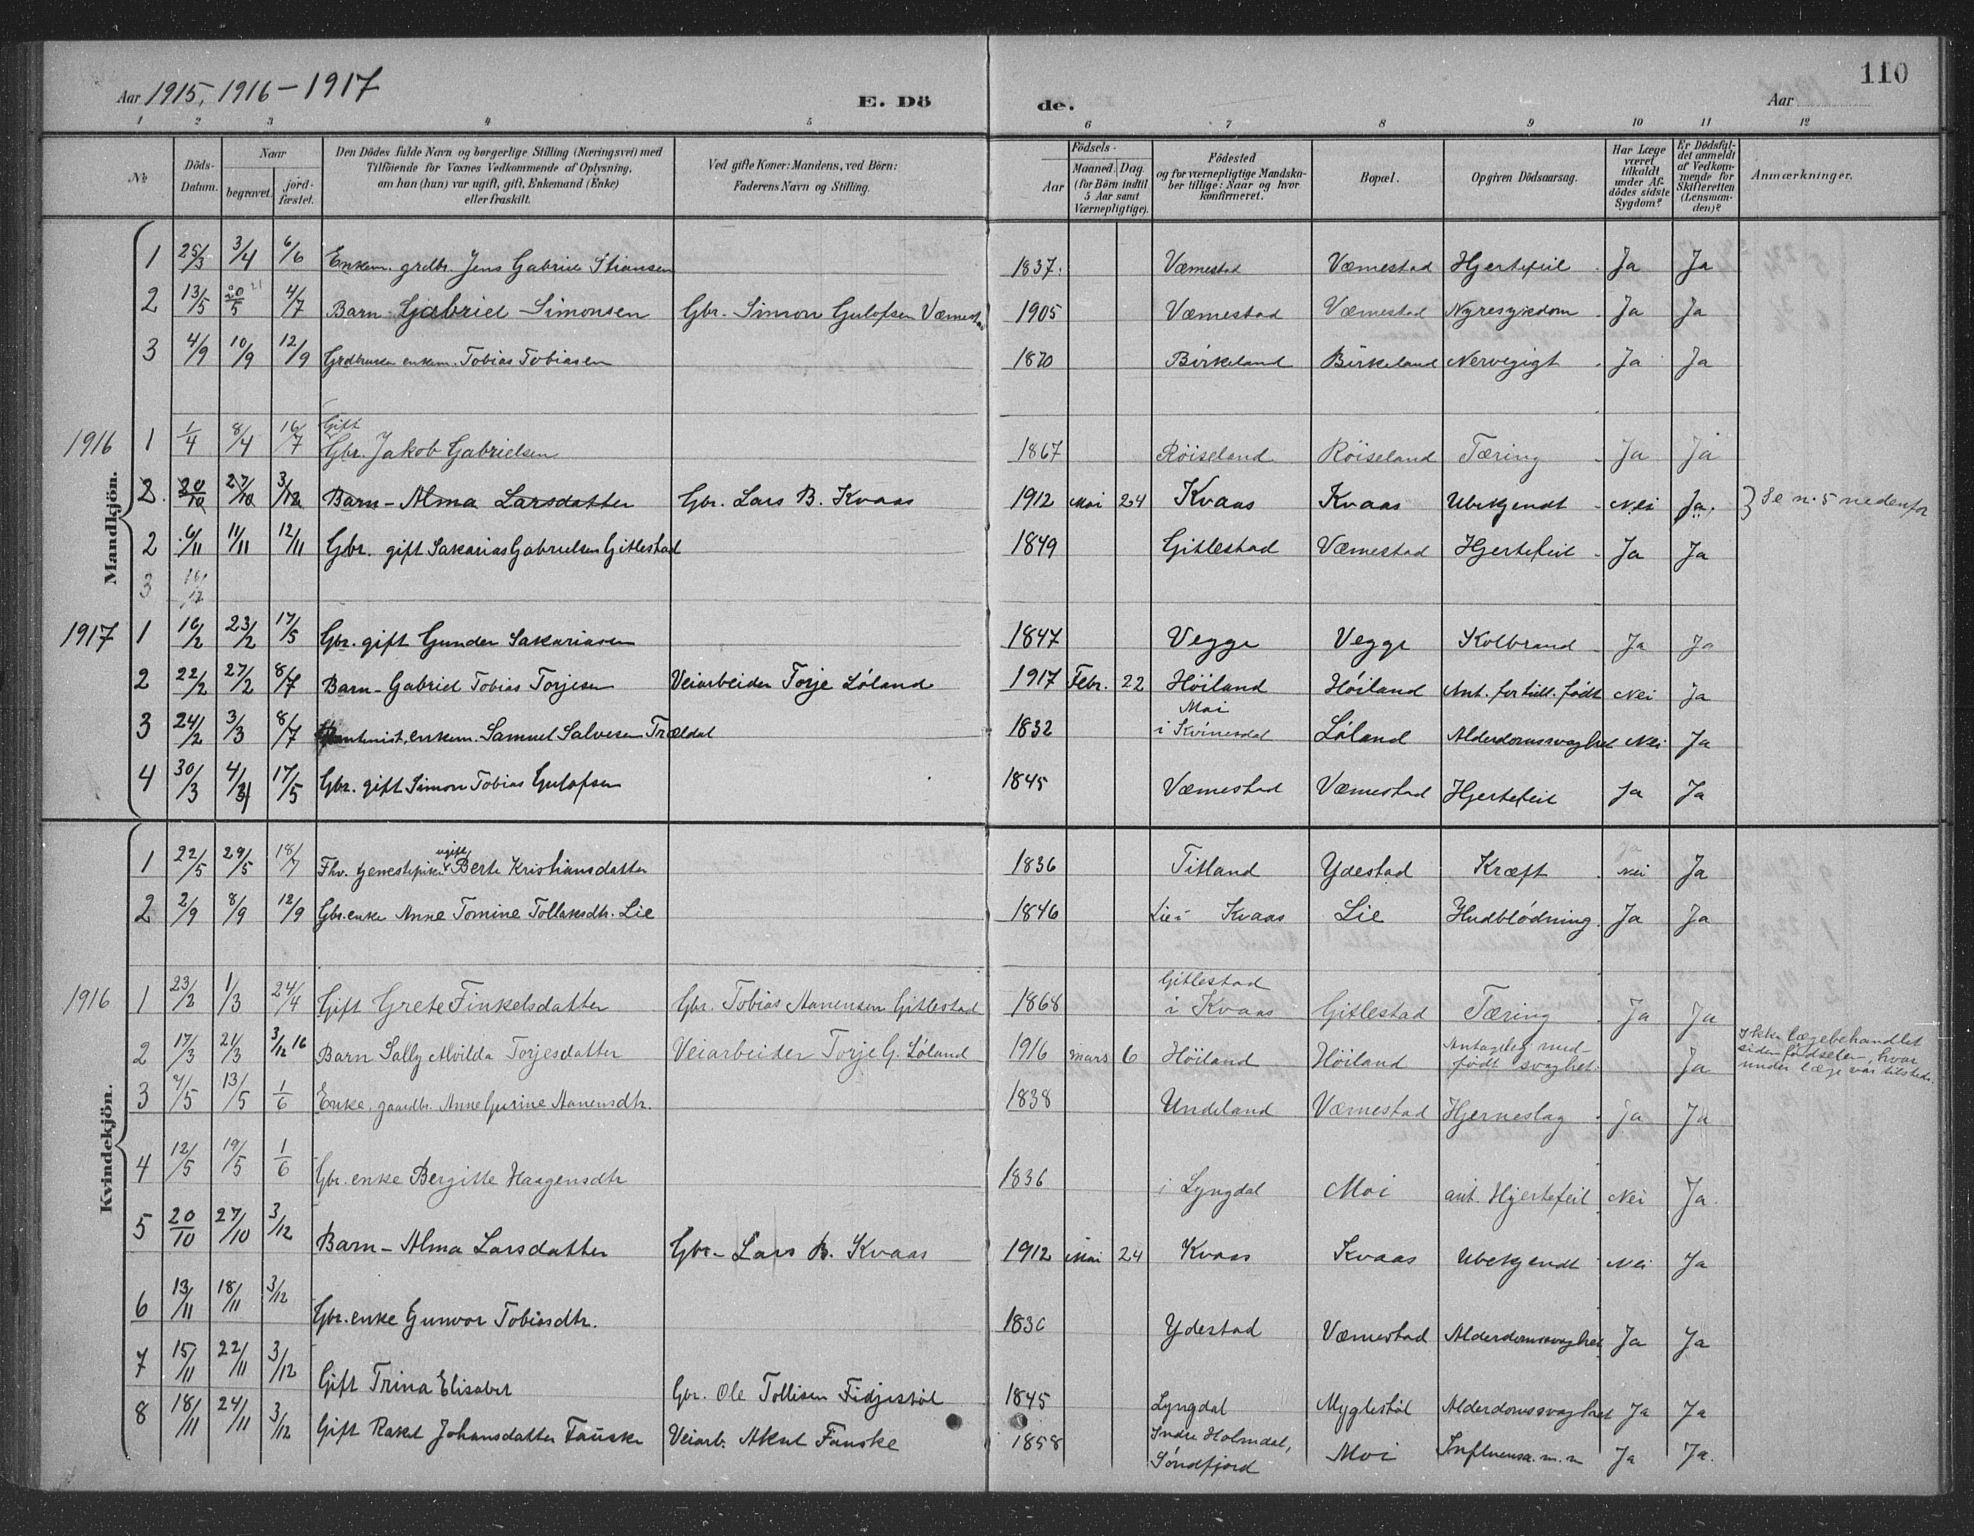 Aar 1915, 1916 - 1917 E. Dö de. Aar 110
1 2 3 4 5 6 7 8 9 10 11 12
No Döds-Datum. Naar begravet. jord-fæstet. Den Dödes fulde Navn og borgerlige Stilling (Næringsvei) med Tilföiende for Voxnes Vedkommende af Oplysning, om han (hun) var ugift, gift, Enkemand (Enke) eller fraskilt. Ved gifte Koner: Mandens, ved Börn: Faderens Navn og Stilling. Födsels- Aar Maaned. Dag. (for Börn indtil 5 Aar samt Værnepligtige). Födested og for værnepligtige Mandskaber tillige: Naar og hvor konfirmeret. Bopæl. Opgiven Dödsaarsag. Har Læge været tilkaldt under Afdödes sidste Sygdom? Er Dödsfaldet anmeldt af Vedkommende for Skifteretten (Lensmanden)? Anmærkninger.
Mandkjön.
1 25/3 3/4 6/6 Enkem. grdbr. Jens Gabriel Stiansen 1837. Væmestad Væmestad Hjertefeil Ja Ja
2 13/5 20/5 21 4/7 Barn Gabriel Simonsen Gbr. Simon Gulofsen Væmestad 1905 Væmestad Væmestad Nyresygdom Ja Ja
3 4/9 10/9 12/9 Grdbruker enkem. Tobias Tobiasen 1870 Birkeland Birkeland Nervegigt Ja Ja
1916 1 1/4 8/4 16/7 Gift Gbr. Jakob Gabrielsen 1867 Röiseland Röiseland Tæring Ja Ja
2. 20/10 27/10 3/12 Barn - Alma Larsdatter Gbr. Lars B. Kvaas 1912 Mai 24 Kvaas Kvaas Ubekjendt Nei Ja. } Se n. 5 nedenfor
2 6/11 11/11 12/11 Gbr. gift Sakarias Gabrielsen Gitlestad 1849 Gitlestad Væmestad Hjertefeil Ja Ja
3 16/12
1917 1 16/2 23/2 17/5 Gbr. gift Gunder Sakariasen 1847 Vegge Vegge Kolbrand Ja Ja
2 22/2 27/2 8/7 Barn - Gabriel Tobias Torjesen Veiarbeider Torje Löland 1917 Febr. 22 Höiland Höiland Ant. for tidl. födt Nei Ja
3 24/2 3/3 8/7 enkem. Samuel Salvesen Trældal 1832 Moi i Kvinesdal Löland Alderdomssvaghet Nei Ja
4 30/3 4/4 17/5 Gbr. gift Simon Tobias Gulofsen 1845 Væmestad Væmestad Hjertefeil Ja Ja
Kvindekjön.
1 22/5 29/5 18/7 Fhv. tjenestepike ugift Berte Kristiansdatter 1836 Titland Ydestad Kræft Ja Nei Ja
2 2/9 8/9 12/9 Gbr. enke Anne Tomine Tollaksdtr. Lie 1846 Lie i Kvaas Lie Hudblödning Ja Ja
1916 1 23/2 1/3 24/4 Gift Grete Finkelsdatter Gbr. Tobias Aanensen Gitlestad 1868 Gitlestad i Kvaas Gitlestad Tæring Ja Ja
2 17/3 21/3 3/12 16 Barn Sally Alvilda Torjesdatter Veiarbeider Torje G. Löland 1916 mars 6 Höiland Höiland Antagelig medfödt svaghet. Ja Ikke lægebehandlet siden födselen, hvorunder læge var tilstede.
3 7/5 13/5 1/6 Enke. gaardbr. Anne Gurine Aanensdtr. 1838 Undeland Væmestad Hjerneslag Ja Ja
4 12/5 19/5 1/6 Gbr. enke Bergitte Haagensdtr 1836 i Lyngdal Moi ant. Hjertefeil Nei Ja.
5 20/10 27/10 3/12 Barn - Alma Larsdatter Gbr. Lars B. Kvaas 1912 Mai 24 Kvaas Kvaas Ubekjendt Nei Ja
6 13/11 18/11 3/12 Gbr. enke Gunvor Tobiasdtr. 1836 Ydestad Væmestad Alderdomssvaghet Ja Ja
7 15/11 22/11 3/12 Gift Trina Elisabet Gbr. Ole Tollisen Fidjestöl 1845 Lyngdal Myglestöl Alderdomssvaghet Ja Ja
8 18/11 24/11 3/12 Gift Rakel Johansdatter Fauske Veiarb. Aknt Fauske 1858 Indre Holmdal, Söndfjord Moi Influensa m.m Ja Ja.